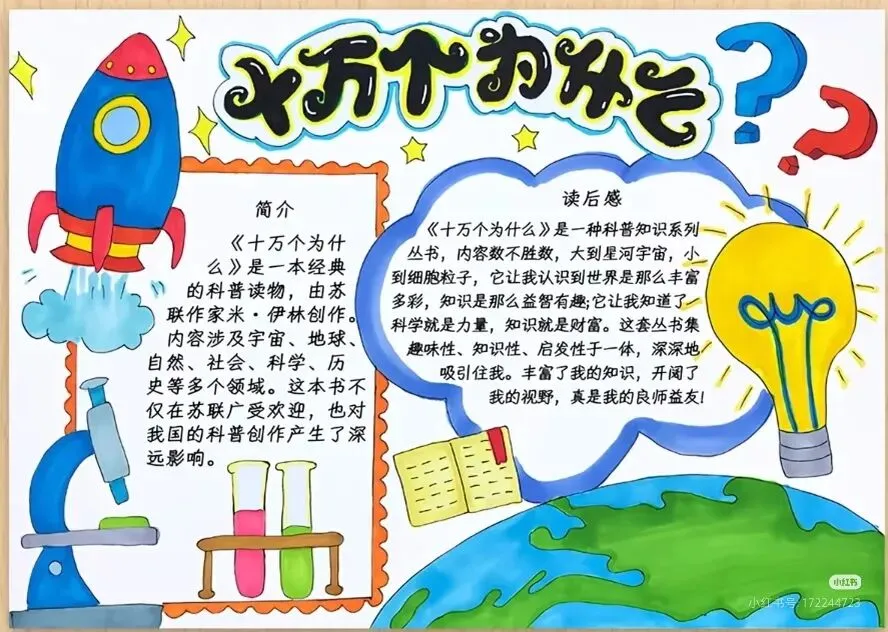 十万个为什么
简介
《十万个为什
么》是一本经典
的科普读物，由苏
联作家米·伊林创作。
内容涉及宇宙、地球、
自然、社会、科学、历
史等多个领域。这本书不
仅在苏联广受欢迎，也对
我国的科普创作产生了深
远影响。
读后感
《十万个为什么》是一种科普知识系列
丛书，内容数不胜数，大到星河宇宙，小
到细胞粒子，它让我认识到世界是那么丰富
多彩，知识是那么益智有趣;它让我知道了
科学就是力量，知识就是财富。这套丛书集
趣味性、知识性、启发性于一体，深深地
吸引住我。丰富了我的知识，开阔了
我的视野，真是我的良师益友!
小红书
小红书号:172244723